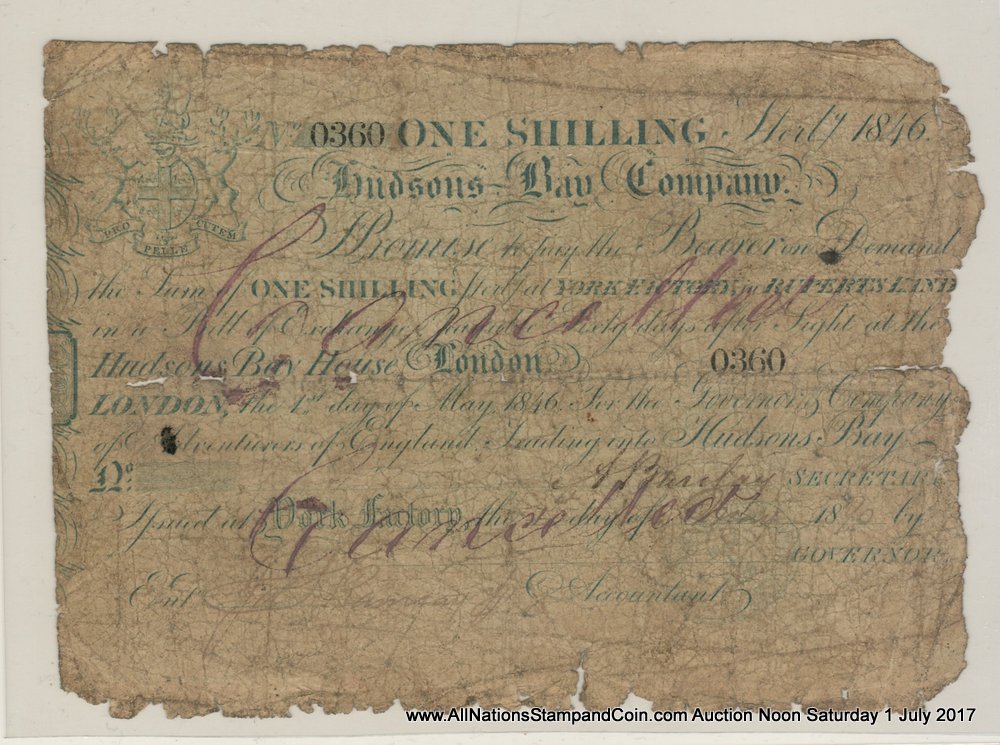 No 0360 ONE SHILLING Sterlg 1846.
Hudsons Bay Company.
PRO PELLE CUTEM
I Promise to pay the Bearer on Demand
the Sum of ONE SHILLING Sterg at YORK FACTORY in RUPERTS LAND
in a Bill of Exchange Payable Sixty days after Sight at the
Hudsons Bay House London 0360
Cancelled
LONDON, the 1st day of May 1846. For the Governor & Company
of Adventurers of England Trading into Hudsons Bay
No. A Barclay SECRETARY
Issued at York Factory, the day of 18 by
Cancelled
GOVERNOR.
Entd Accountant
www.AllNationsStampandCoin.com Auction Noon Saturday 1 July 2017